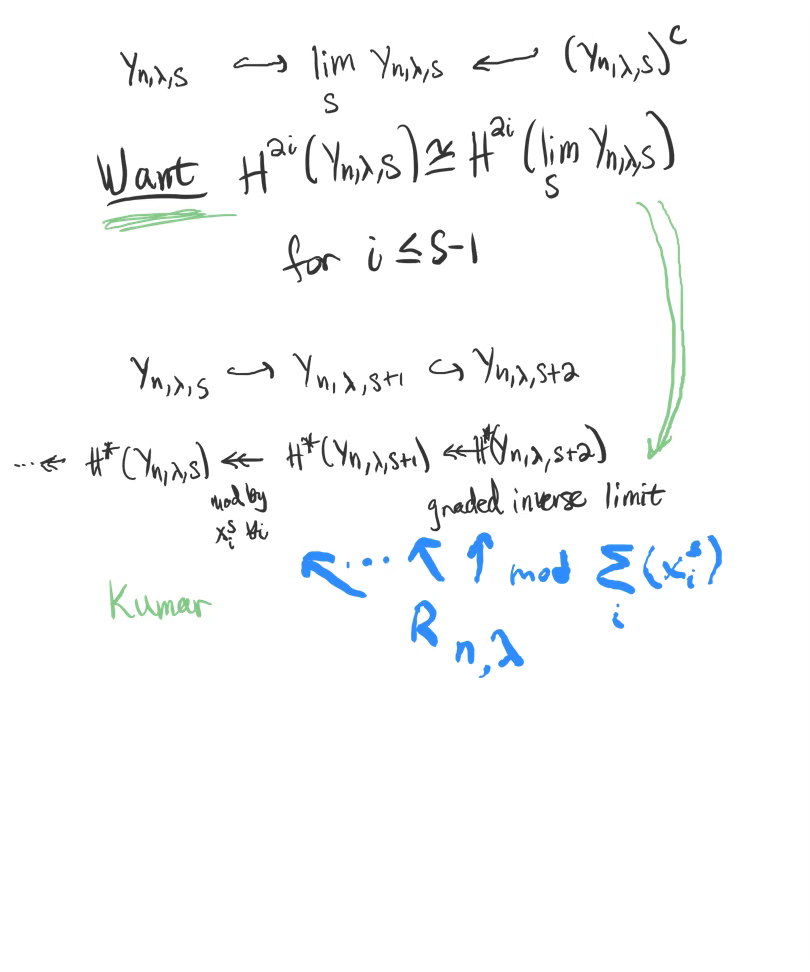 Y_{n,λ,s} ↪ lim_s Y_{n,λ,s} ↩ (Y_{n,λ,s})^c
Want H^{2i}(Y_{n,λ,s}) ≅ H^{2i}(lim_s Y_{n,λ,s})
for i ≤ s-1
Y_{n,λ,s} ↪ Y_{n,λ,s+1} ↪ Y_{n,λ,s+2}
⋯ ↞ H*(Y_{n,λ,s}) ↞ H*(Y_{n,λ,s+1}) ↞ H*(Y_{n,λ,s+2})
mod by
x_i^s ∀i
graded inverse limit
↖ ⋯ ↖ ↑ mod Σ_i (x_i^s)
Kumar
R_{n,λ}